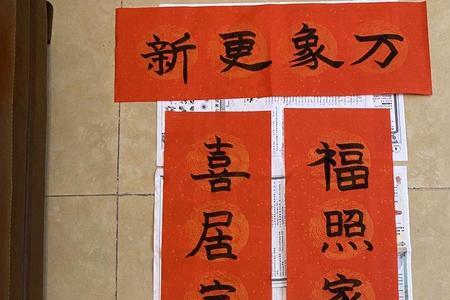 万象更新
福照家
喜居